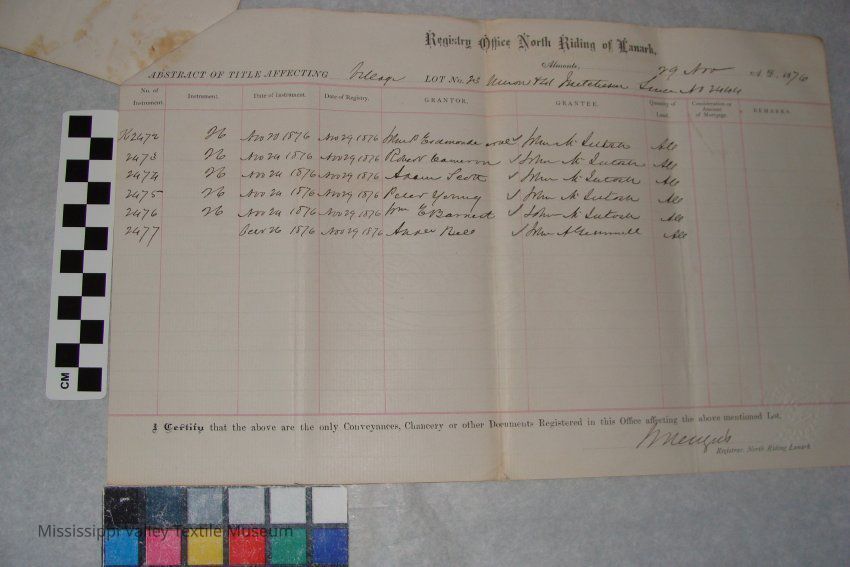 Registry Office North Riding of Lanark,
Almonte, 29 Nov A.D. 1876
ABSTRACT OF TITLE AFFECTING Village LOT No. 23 Union Since No 2444
No. of Instrument. Instrument. Date of Instrument. Date of Registry. GRANTOR. GRANTEE. Quantity of Land. Consideration or Amount of Mortgage. REMARKS.
2472 Nov 20 1876 Nov 29 1876 John McIntosh All
2473 Nov 24 1876 Nov 29 1876 Robert Cameron John McIntosh All
2474 Nov 24 1876 Nov 29 1876 Adam Scott John McIntosh All
2475 Nov 24 1876 Nov 29 1876 Peter Young John McIntosh All
2476 Nov 24 1876 Nov 29 1876 Wm E Barnett John McIntosh All
2477 26 1876 Nov 29 1876 Bell John A Gemmill All
I Certify that the above are the only Conveyances, Chancery or other Documents Registered in this Office affecting the above mentioned Lot.
Registrar, North Riding Lanark
CM
Mississippi Valley Textile Museum